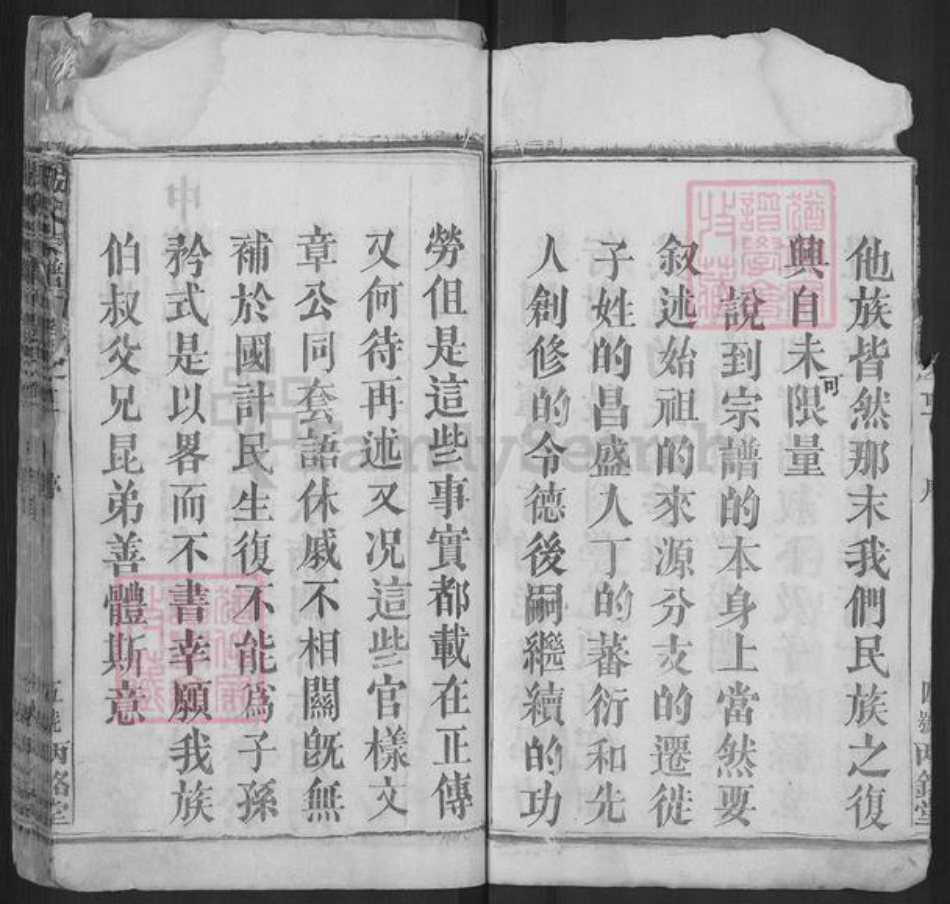 他族皆然那末我們民族之復
興自未可限量
說到宗譜的本身上當然要
叙述始祖的來源分支的遷徙
子姓的昌盛人丁的蕃衍和先
人創修的令德後嗣繼續的功
勞但是這些事實都載在正傳
又何待再述又况這些官樣文
章公同套語休戚不相關旣無
補於國計民生復不能爲子孫
矜式是以畧而不書幸願我族
伯叔父兄昆弟善體斯意
FamilySearch